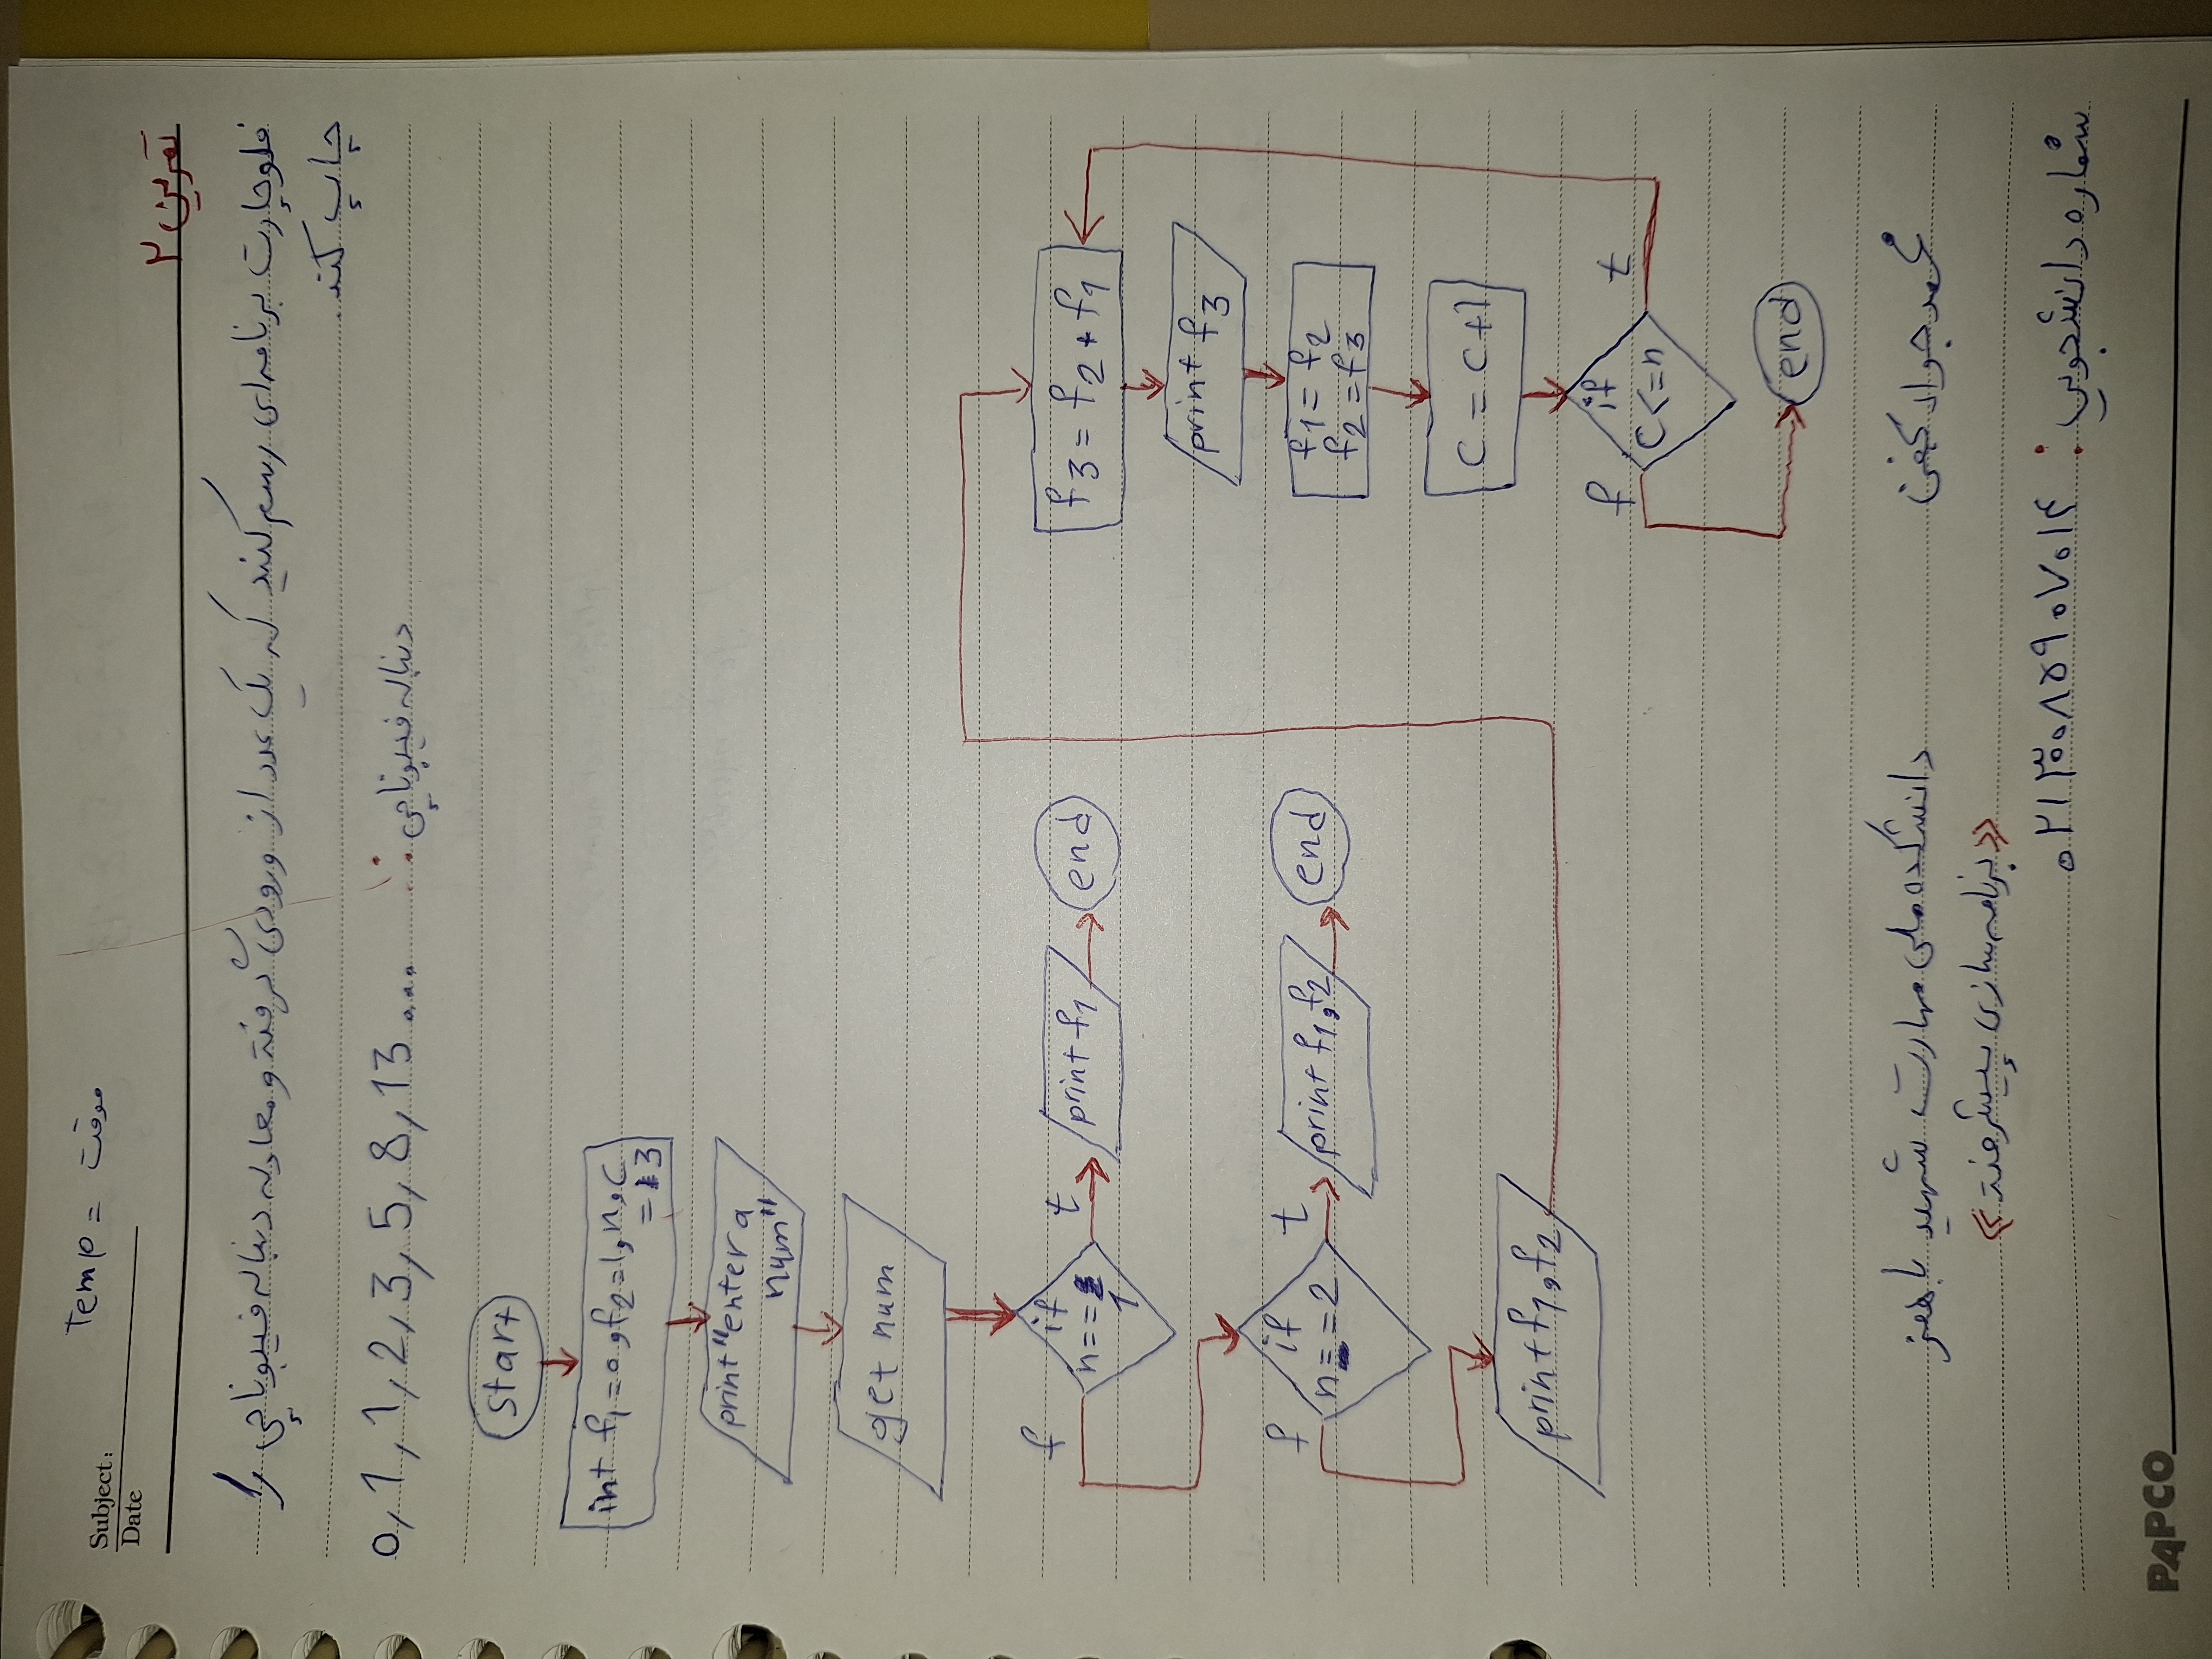 Temp = موقت
Subject:
Date
تمرین ۲
فلوچارت برنامه‌ای رسم کنید که یک عدد از ورودی گرفته و معادله دنباله فیبوناچی را
چاپ کند.
دنباله فیبوناچی: 0, 1, 1, 2, 3, 5, 8, 13 ...
start
int f1=0,f2=1,n,c
=3
print "enter a
num"
get num
if
n==
1
f
t
print f1
end
if
n==2
f
t
print f1,f2
end
print f1,f2
f3 = f2 + f1
print f3
f1 = f2
f2 = f3
C = C+1
if
C<=n
f
t
end
محمد جواد دانشکده ملی مهارت شهید باهنر
«برنامه سازی پیشرفته»
شماره دانشجویی: ۰۲۱۳۰۰۸۵۹۰۷۰۱۴
PAPCO